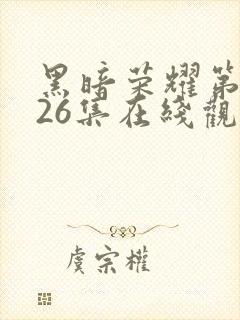 黑暗荣耀第
26集在线觀
虞宗權